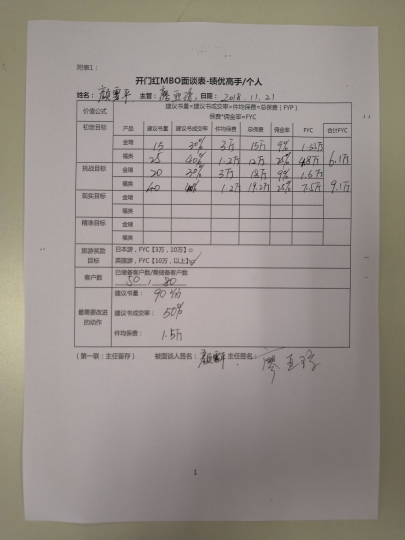 附表1：
开门红MBO面谈表-绩优高手/个人
姓名： 主管： 日期：2018.11.21
价值公式 建议书量×建议书成交率×件均保费=总保费（FYP）
保费*佣金率=FYC
初定目标 产品 建议书量 建议书成交率 件均保费 总保费 佣金率 FYC 合计FYC
金瑞 15 30% 3万 15万 9%
福英 25 40% 1.2万 12万 25% 4.8万 6.1万
挑战目标 金瑞 20 30% 3万 18万 9% 1.6万
福英 60 1.2万 19.2万 25% 7.5万 9.1万
现实目标 金瑞
福英
精准目标 金瑞
福英
旅游奖励 日本游，FYC【3万，10万】□
目标 英国游，FYC【10万，以上】
客户数 已储备客户数/需储备客户数
50 , 80
建议书量： 90
最需要改进 建议书成交率： 50%
的动作
件均保费： 1.5万
（第一联：主任留存） 被面谈人签名： 主任签名：
1